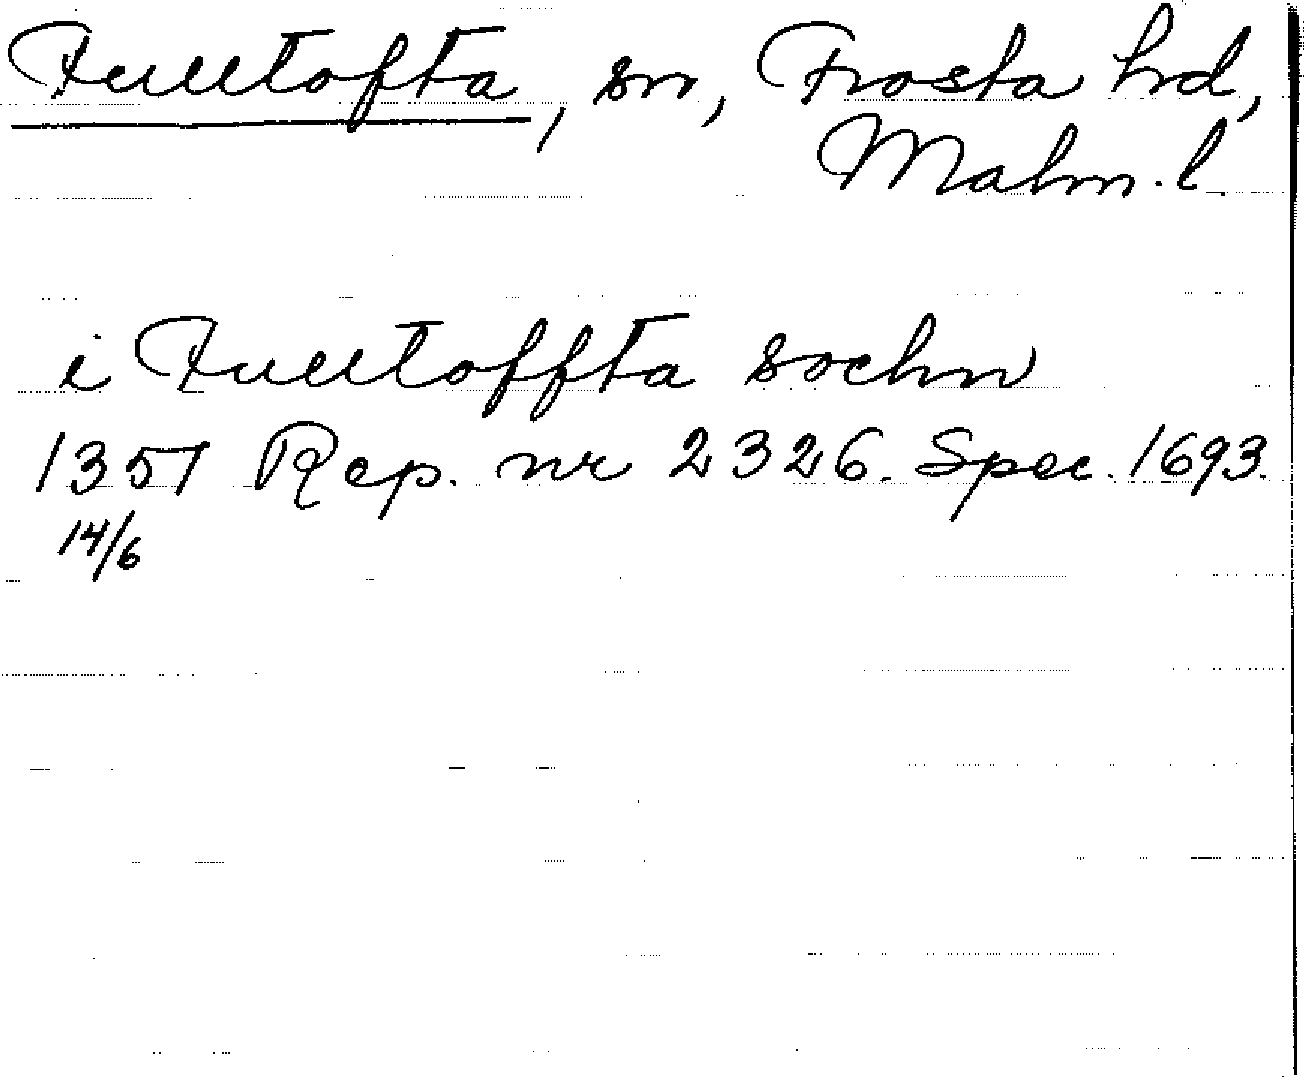 Fulltofta, sn, Frosta hd,
Malm. l.
i Fulltoffta sochn
1351 Rep. nr 2326. Spec. 1693.
14/6